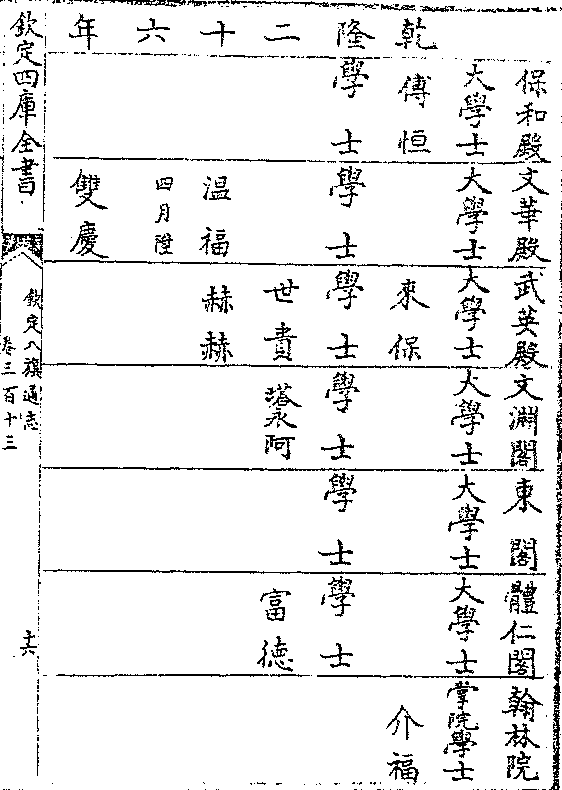 乾隆二十六年
保和殿
大學士
傅恒
學士
文華殿
大學士
學士
温福
四月陞
雙慶
武英殿
大學士
來保
學士
世貴
赫赫
文淵閣
大學士
學士
塔永阿
東閣
大學士
學士
體仁閣
大學士
學士
富德
翰林院
掌院學士
介福
欽定四庫全書
欽定八旗通志
卷三百十三
十六